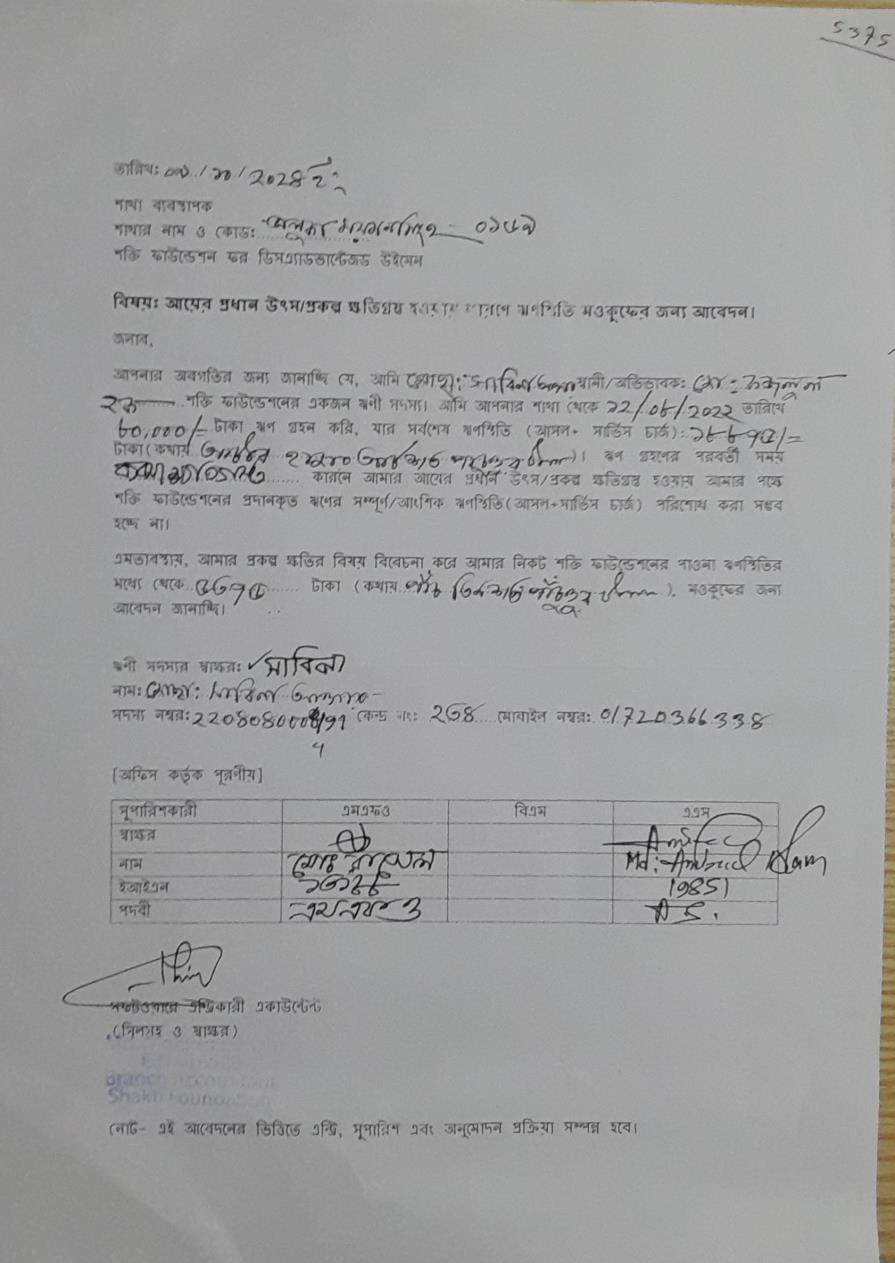 5375
তারিখ: /১০/২০২৪ ইং
শাখা ব্যবস্থাপক
শাখার নাম ও কোড:
শক্তি ফাউন্ডেশন ফর ডিসএ্যাডভান্টেজড উইমেন
বিষয়: আয়ের প্রধান উৎস/প্রকল্প ক্ষতিগ্রস্থ হওয়ার কারণে ঋণস্থিতি মওকুফের জন্য আবেদন।
জনাব,
আপনার অবগতির জন্য জানাচ্ছি যে, আমি মোছা: সাবিনা স্বামী/অভিভাবক: মো: ফজলুল
হক শক্তি ফাউন্ডেশনের একজন ঋণী সদস্য। আমি আপনার শাখা থেকে ২২/০৮/২০২২ তারিখে
৮০,০০০/= টাকা ঋণ গ্রহন করি, যার সর্বশেষ ঋণস্থিতি (আসল+ সার্ভিস চার্জ):
টাকা (কথায় )। ঋণ গ্রহণের পরবর্তী সময়
কারনে আমার আয়ের প্রধান উৎস/প্রকল্প ক্ষতিগ্রস্থ হওয়ায় আমার পক্ষে
শক্তি ফাউন্ডেশনের প্রদানকৃত ঋণের সম্পূর্ণ/আংশিক ঋণস্থিতি (আসল+সার্ভিস চার্জ) পরিশোধ করা সম্ভব
হচ্ছে না।
এমতাবস্থায়, আমার প্রকল্প ক্ষতির বিষয় বিবেচনা করে আমার নিকট শক্তি ফাউন্ডেশনের পাওনা ঋণস্থিতির
মধ্যে থেকে ৫৩৭৫ টাকা (কথায় পাঁচ তিনশত পঁচাত্তর ), মওকুফের জন্য
আবেদন জানাচ্ছি।
ঋণী সদস্যর স্বাক্ষর: সাবিনা
নাম: মোছা: সাবিনা
সদস্য নম্বর: কেন্দ্র নং: ২৬৪ মোবাইল নম্বর: 01720366338
[অফিস কর্তৃক পূরণীয়]
সুপারিশকারী এমএফও বিএম এএস
স্বাক্ষর
নাম মোঃ রাসেল Md:
ইআইএন 19851
পদবী এমএফও A S.
সফটওয়্যারে এন্ট্রিকারী একাউন্টেন্ট
(সিলসহ ও স্বাক্ষর)
Branch Accountant
Shakti Foundation
নোট- এই আবেদনের ভিত্তিতে এন্ট্রি, সুপারিশ এবং অনুমোদন প্রক্রিয়া সম্পন্ন হবে।